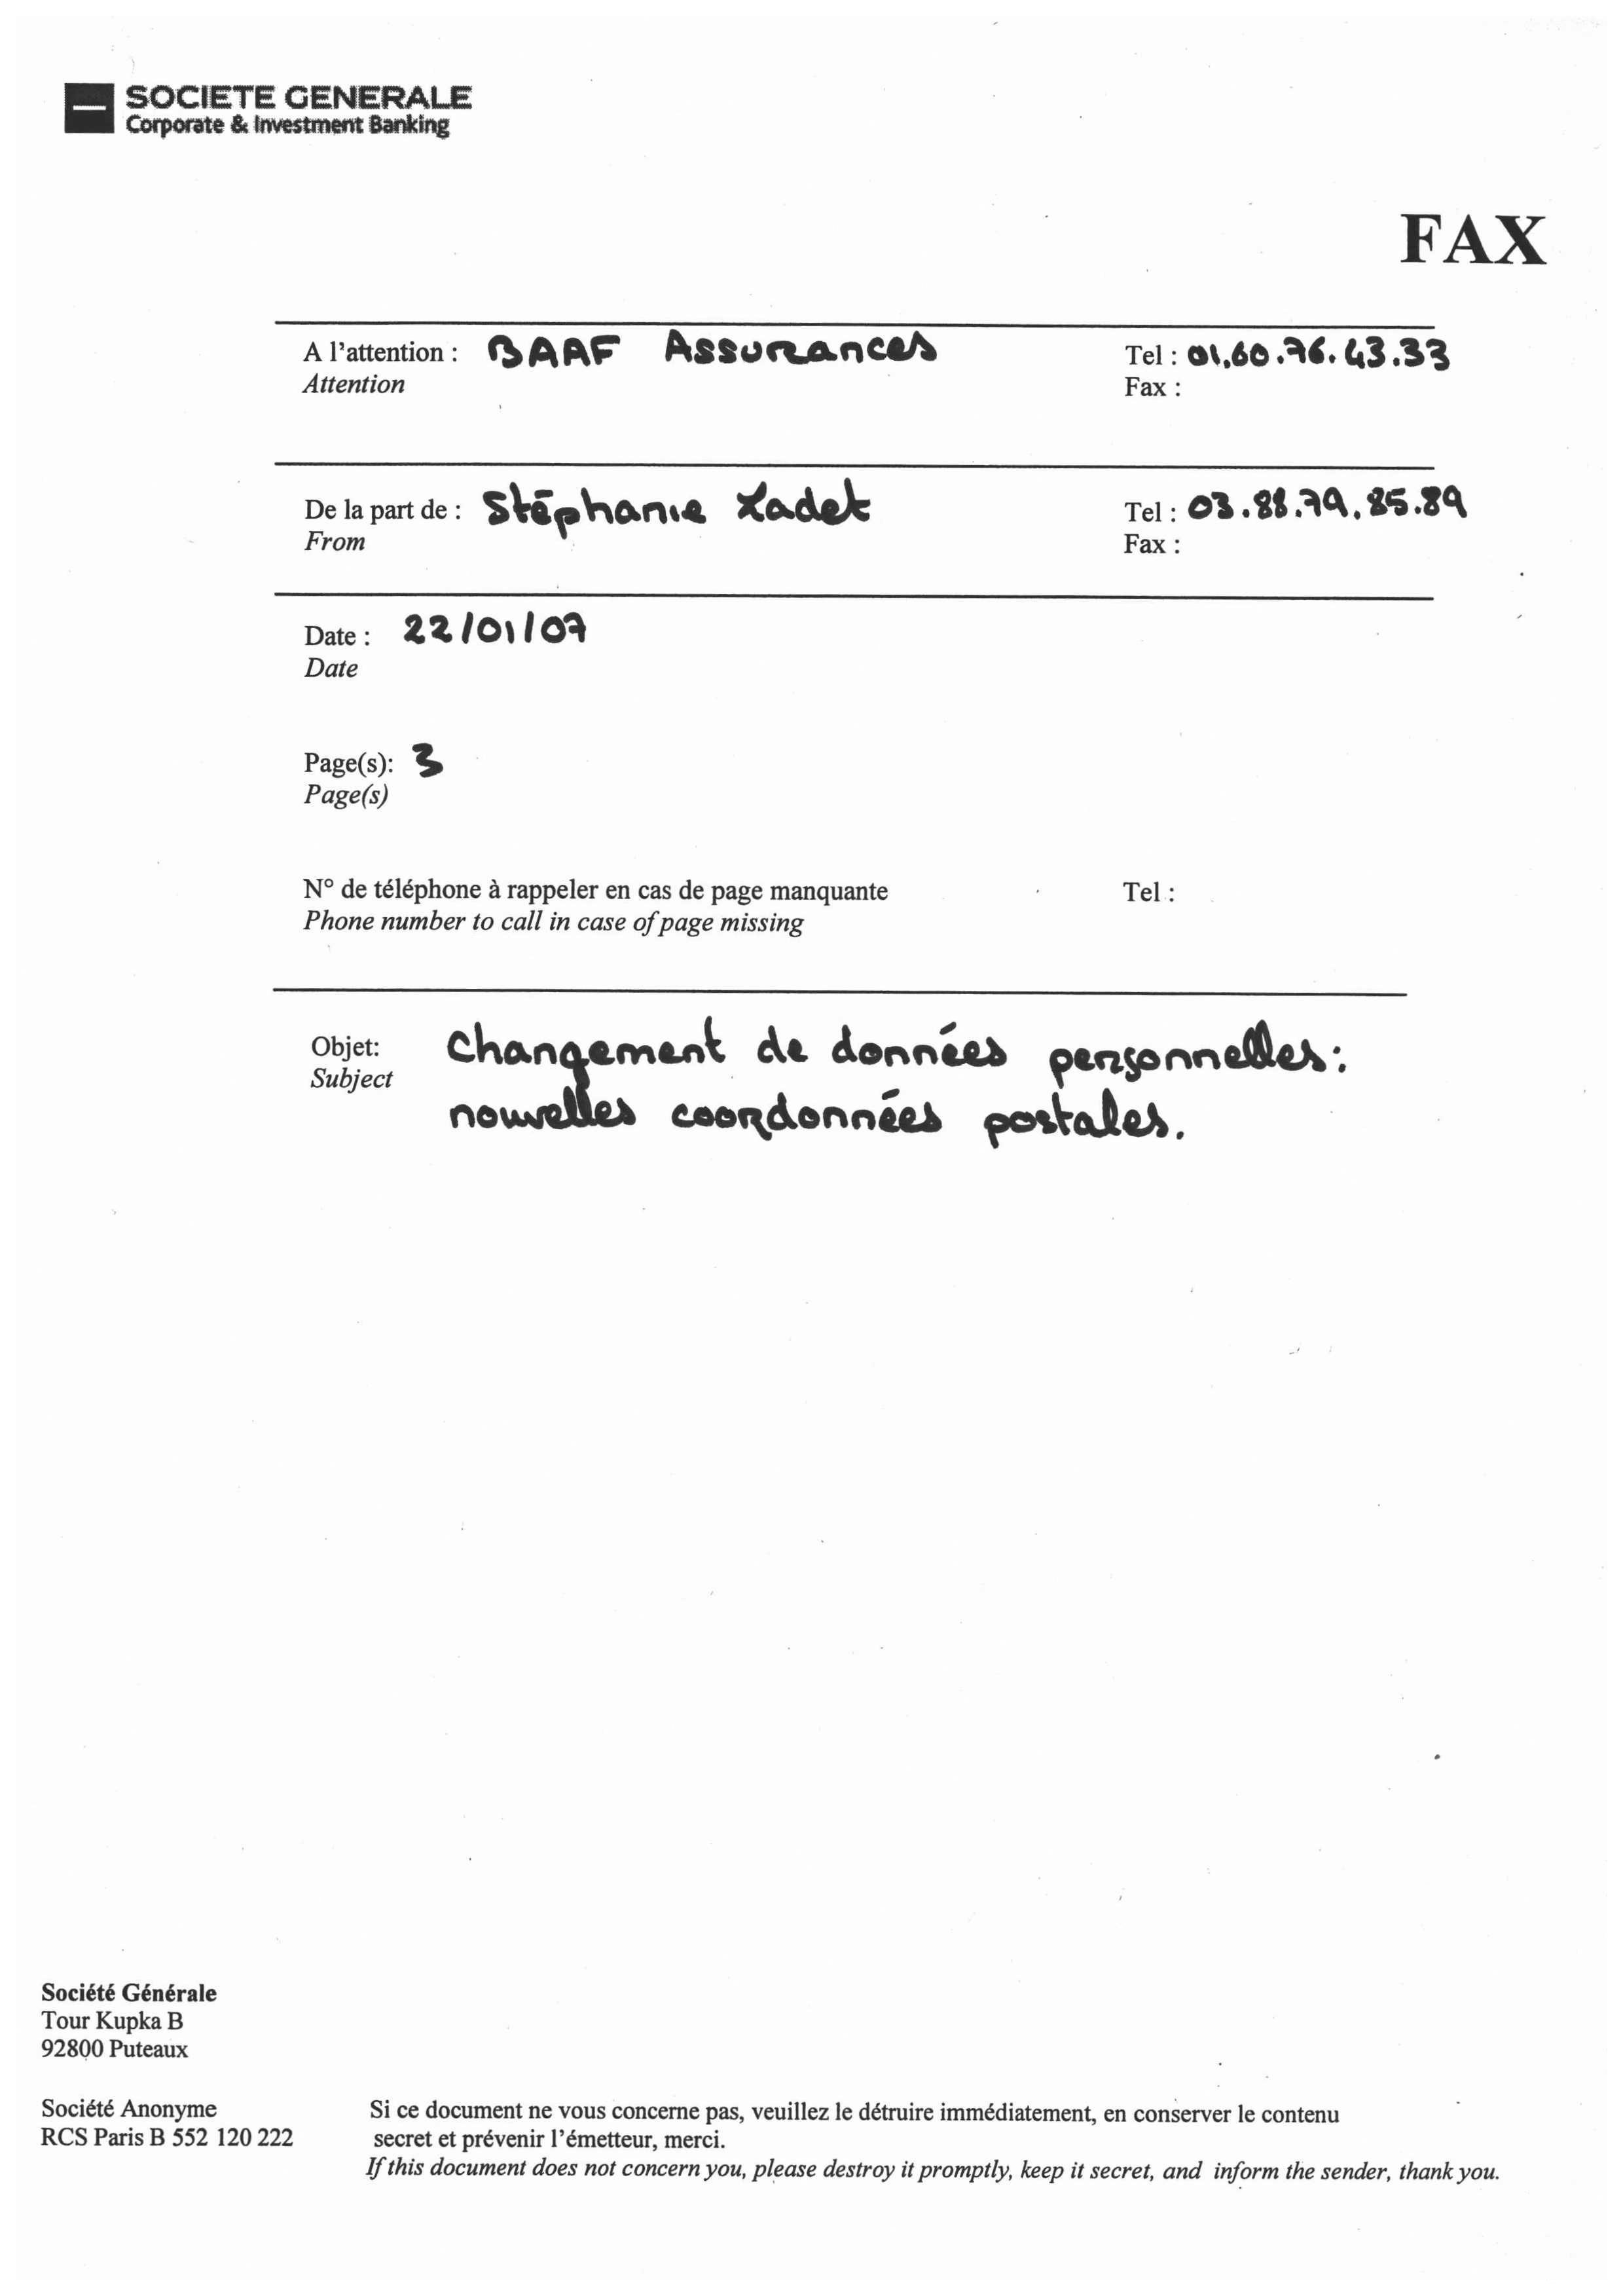 SOCIETE GENERALE
Corporate & Investment Banking
FAX
A l'attention : BAAF Assurances Tel : 01.60.76.43.33
Attention Fax :
De la part de : Stéphanie Ladet Tel : 03.88.79.85.89
From Fax :
Date : 22/01/07
Date
Page(s): 3
Page(s)
N° de téléphone à rappeler en cas de page manquante Tel :
Phone number to call in case of page missing
Objet: Changement de données personnelles:
Subject nouvelles coordonnées postales.
Société Générale
Tour Kupka B
92800 Puteaux
Société Anonyme Si ce document ne vous concerne pas, veuillez le détruire immédiatement, en conserver le contenu
RCS Paris B 552 120 222 secret et prévenir l'émetteur, merci.
If this document does not concern you, please destroy it promptly, keep it secret, and inform the sender, thank you.